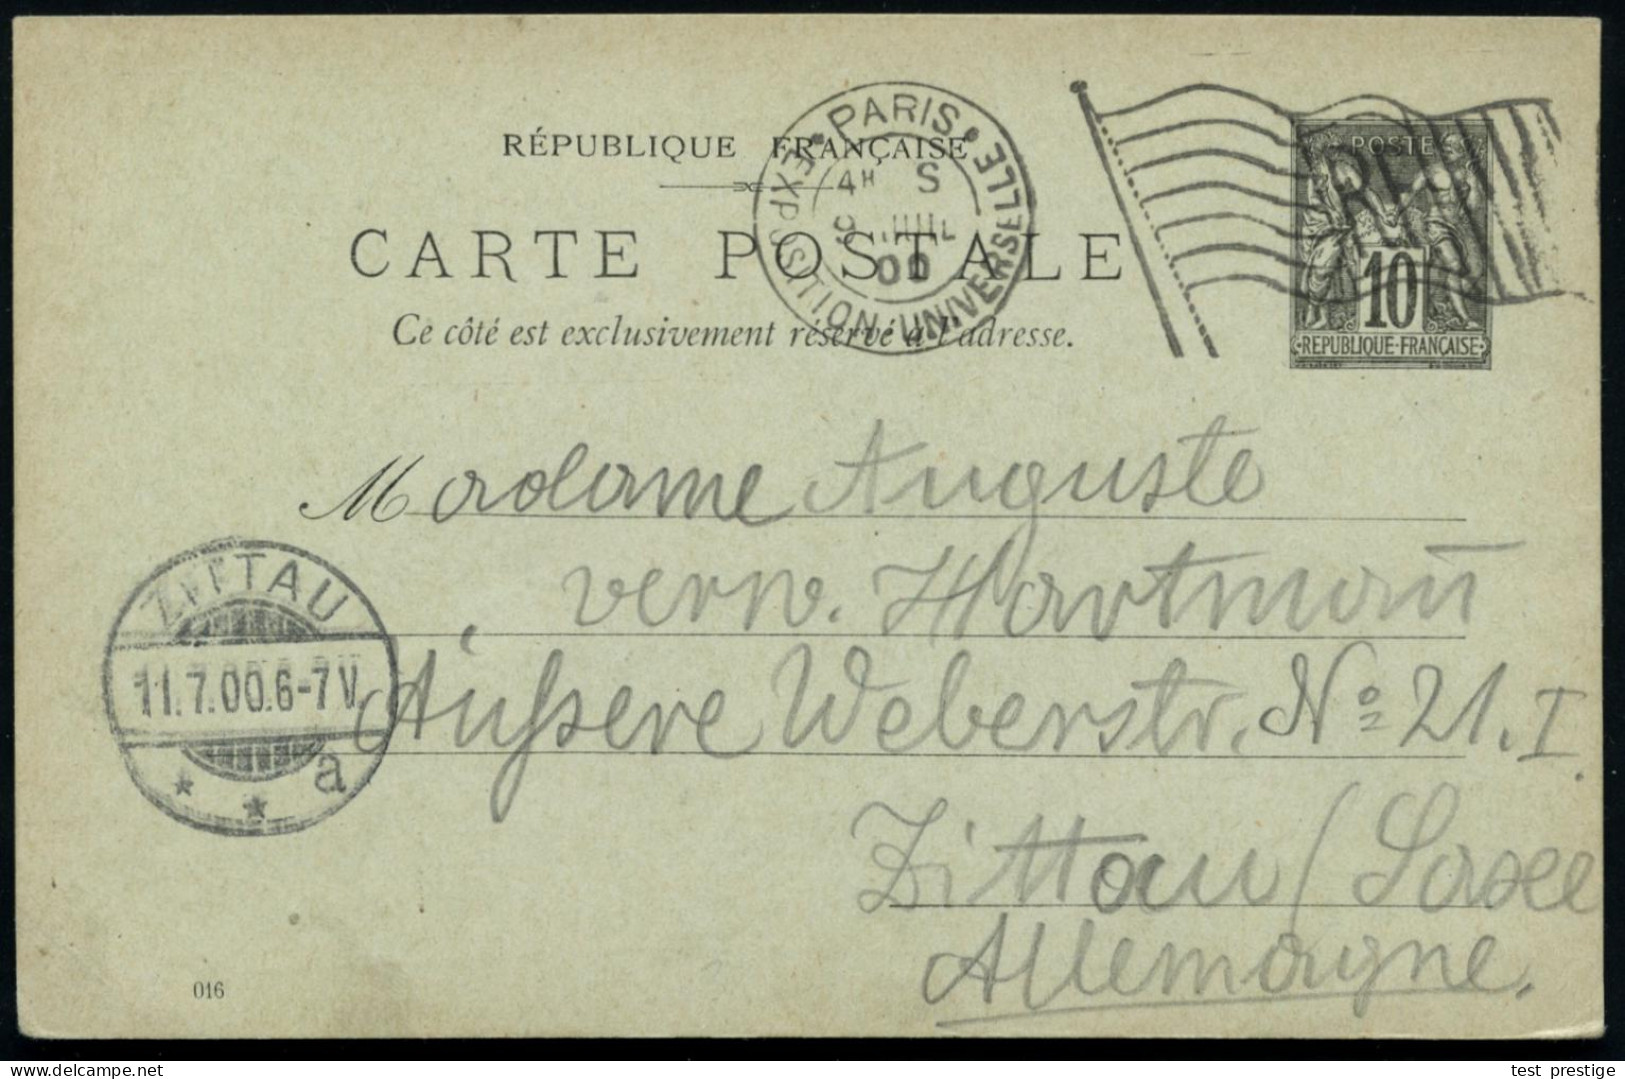 PARIS
EXPOSITION UNIVERSELLE
4H S
9 JUIL
00
RF
POSTES
10
REPUBLIQUE-FRANÇAISE
RÉPUBLIQUE FRANÇAISE
CARTE POSTALE
Ce côté est exclusivement réservé à l'adresse.
Madame Auguste
verw. Hartmañ
Äußere Weberstr. No 21. I.
Zittau / Saxe
Allemagne.
ZITTAU
11.7.00.6-7V.
* * a
016
www.delcampe.net
test prestige